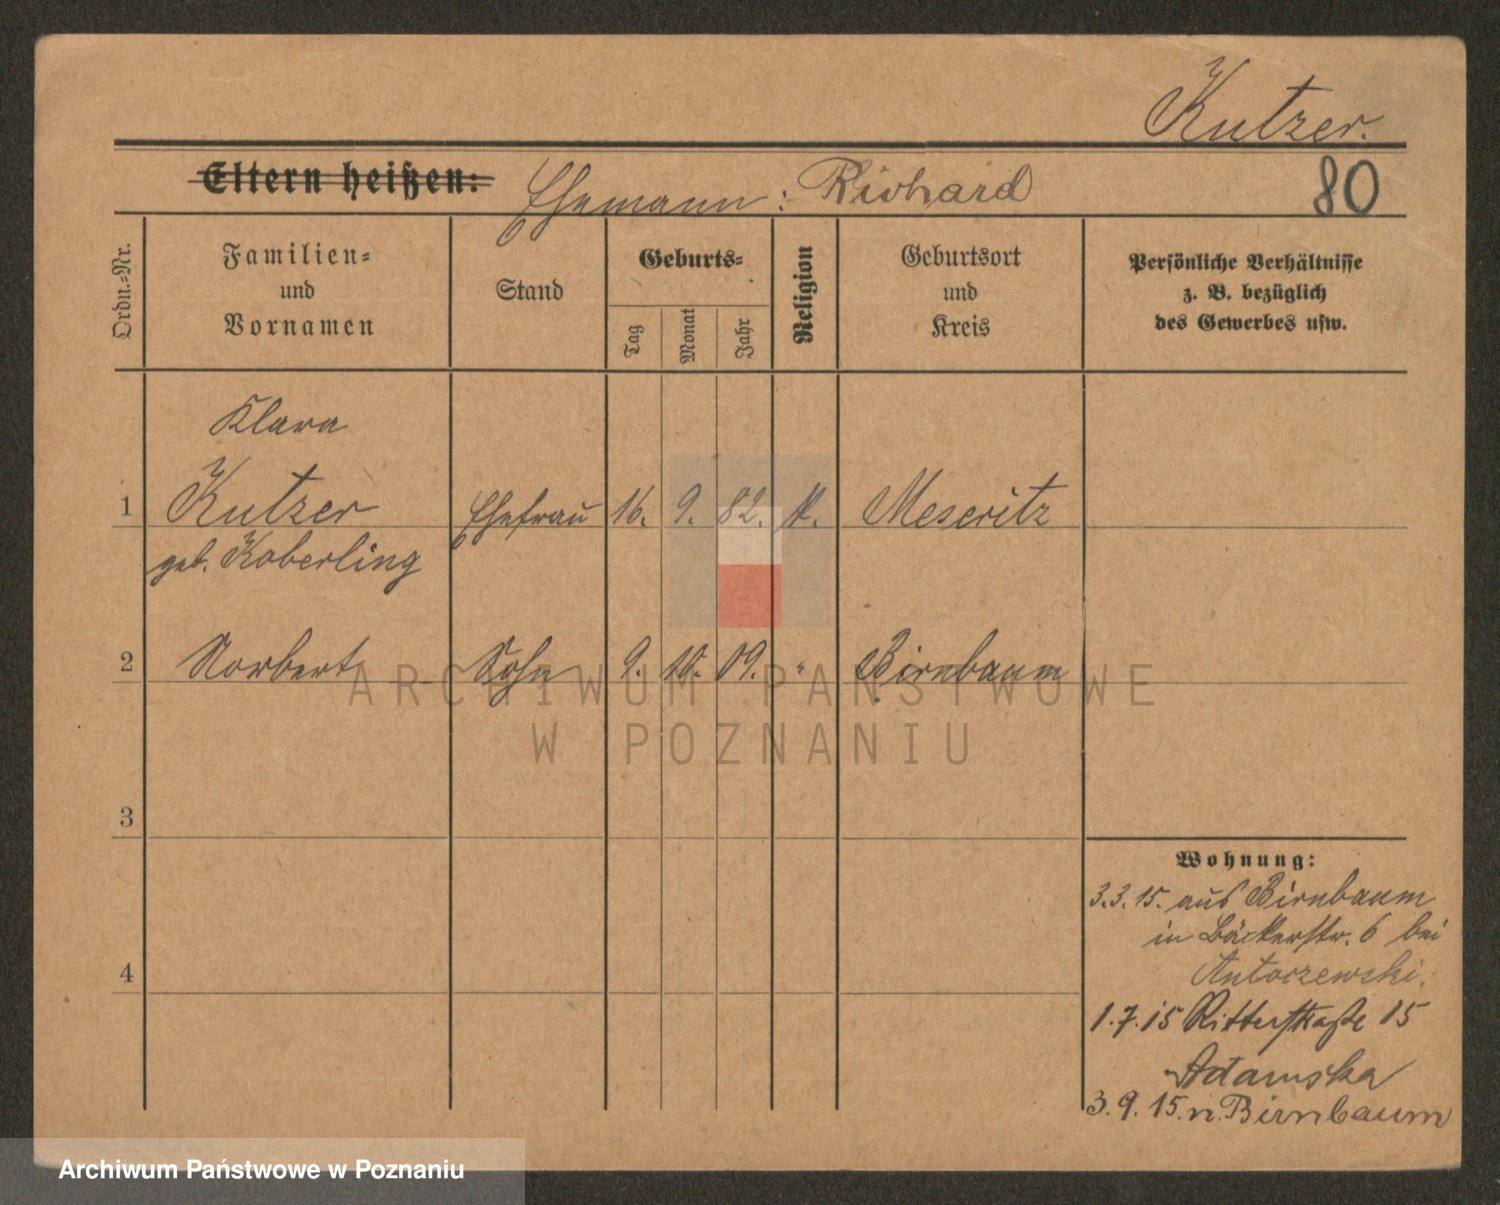 Kutzer.
Eltern heißen: Ehemann: Richard
80
Ordn.-Nr.
Familien-
und
Vornamen
Stand
Geburts-
Tag
Monat
Jahr
Religion
Geburtsort
und
Kreis
Persönliche Verhältnisse
z. B. bezüglich
des Gewerbes usw.
Klara
1 Kutzer Ehefrau 16. 9. 82. k. Meseritz
geb. Koberling
2 Norbert Sohn 9. 10. 09. " Birnbaum
ARCHIWUM PAŃSTWOWE
W POZNANIU
3
4
Wohnung:
3.3.15. aus Birnbaum
in Bäckerstr. 6 bei
Antoszewski.
1.7.15 Ritterstraße 15
Adamska
3.9.15. n. Birnbaum
Archiwum Państwowe w Poznaniu